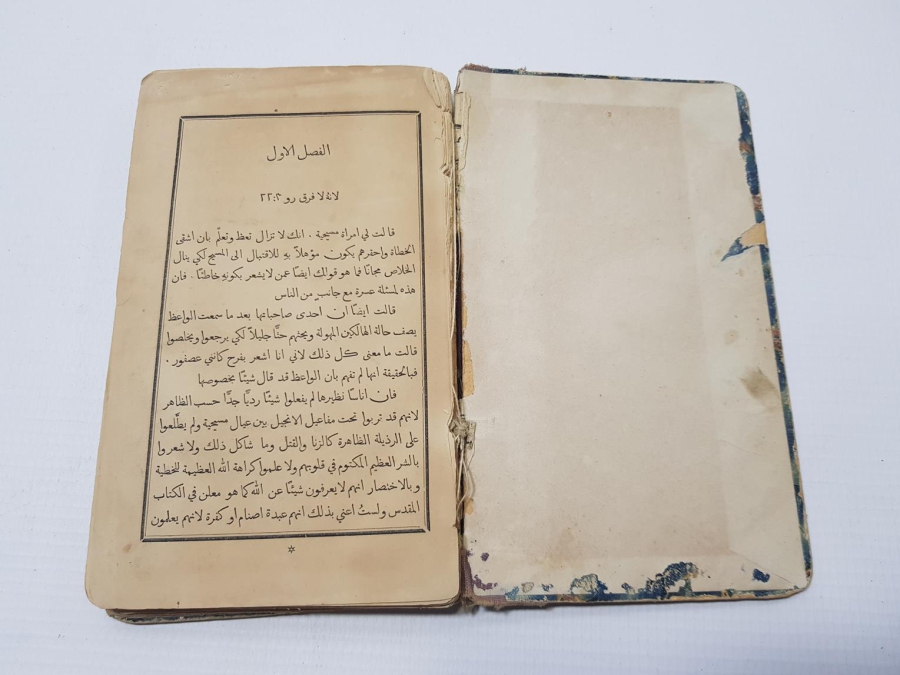 الفصل الاول
لانهُ لا فرق رو ٢:٢٢
قالت لي امراة مسيحية . انك لا تزال تعظ وتعلّم بان اشقى
الخطاة واحقرهم يكون مؤهلاً بهِ للاقتبال الى المسيح لكي ينال
الخلاص مجانًا فما هو قولك ايضًا عن لا يشعر بكونهِ خاطئًا . فان
هذه لمسئلة عسرة مع جانب من الناس
قالت ايضًا ان احدى صاحباتها بعد ما سمعت الواعظ
يصف حالة الهالكين المهولة ويحثهم حثًّا جليلاً لكي يرجعوا ويخلصوا
قالت ما معنى كل ذلك لاني انا اشعر بفرح كانني عصفور .
فبالحقيقة انها لم تفهم بان الواعظ قد قال شيئًا بخصوصها
فان اناسًا نظيرها لم يفعلوا شيئًا رديًّا جدًّا حسب الظاهر
لانهم قد تربوا تحت مفاعيل الانجيل بين عيال مسيحية ولم يطَّلعوا
على الرذيلة الظاهرة كالزنا والقتل وما شاكل ذلك ولا شعروا
بالشر العظيم المكتوم في قلوبهم ولا علموا كراهة الله العظيمة للخطية
وبالاختصار انهم لا يعرفون شيئًا عن الله كما هو معلن في الكتاب
المقدس ولستُ اعني بذلك انهم عبدة اصنام او كفرة لانهم يعلمون